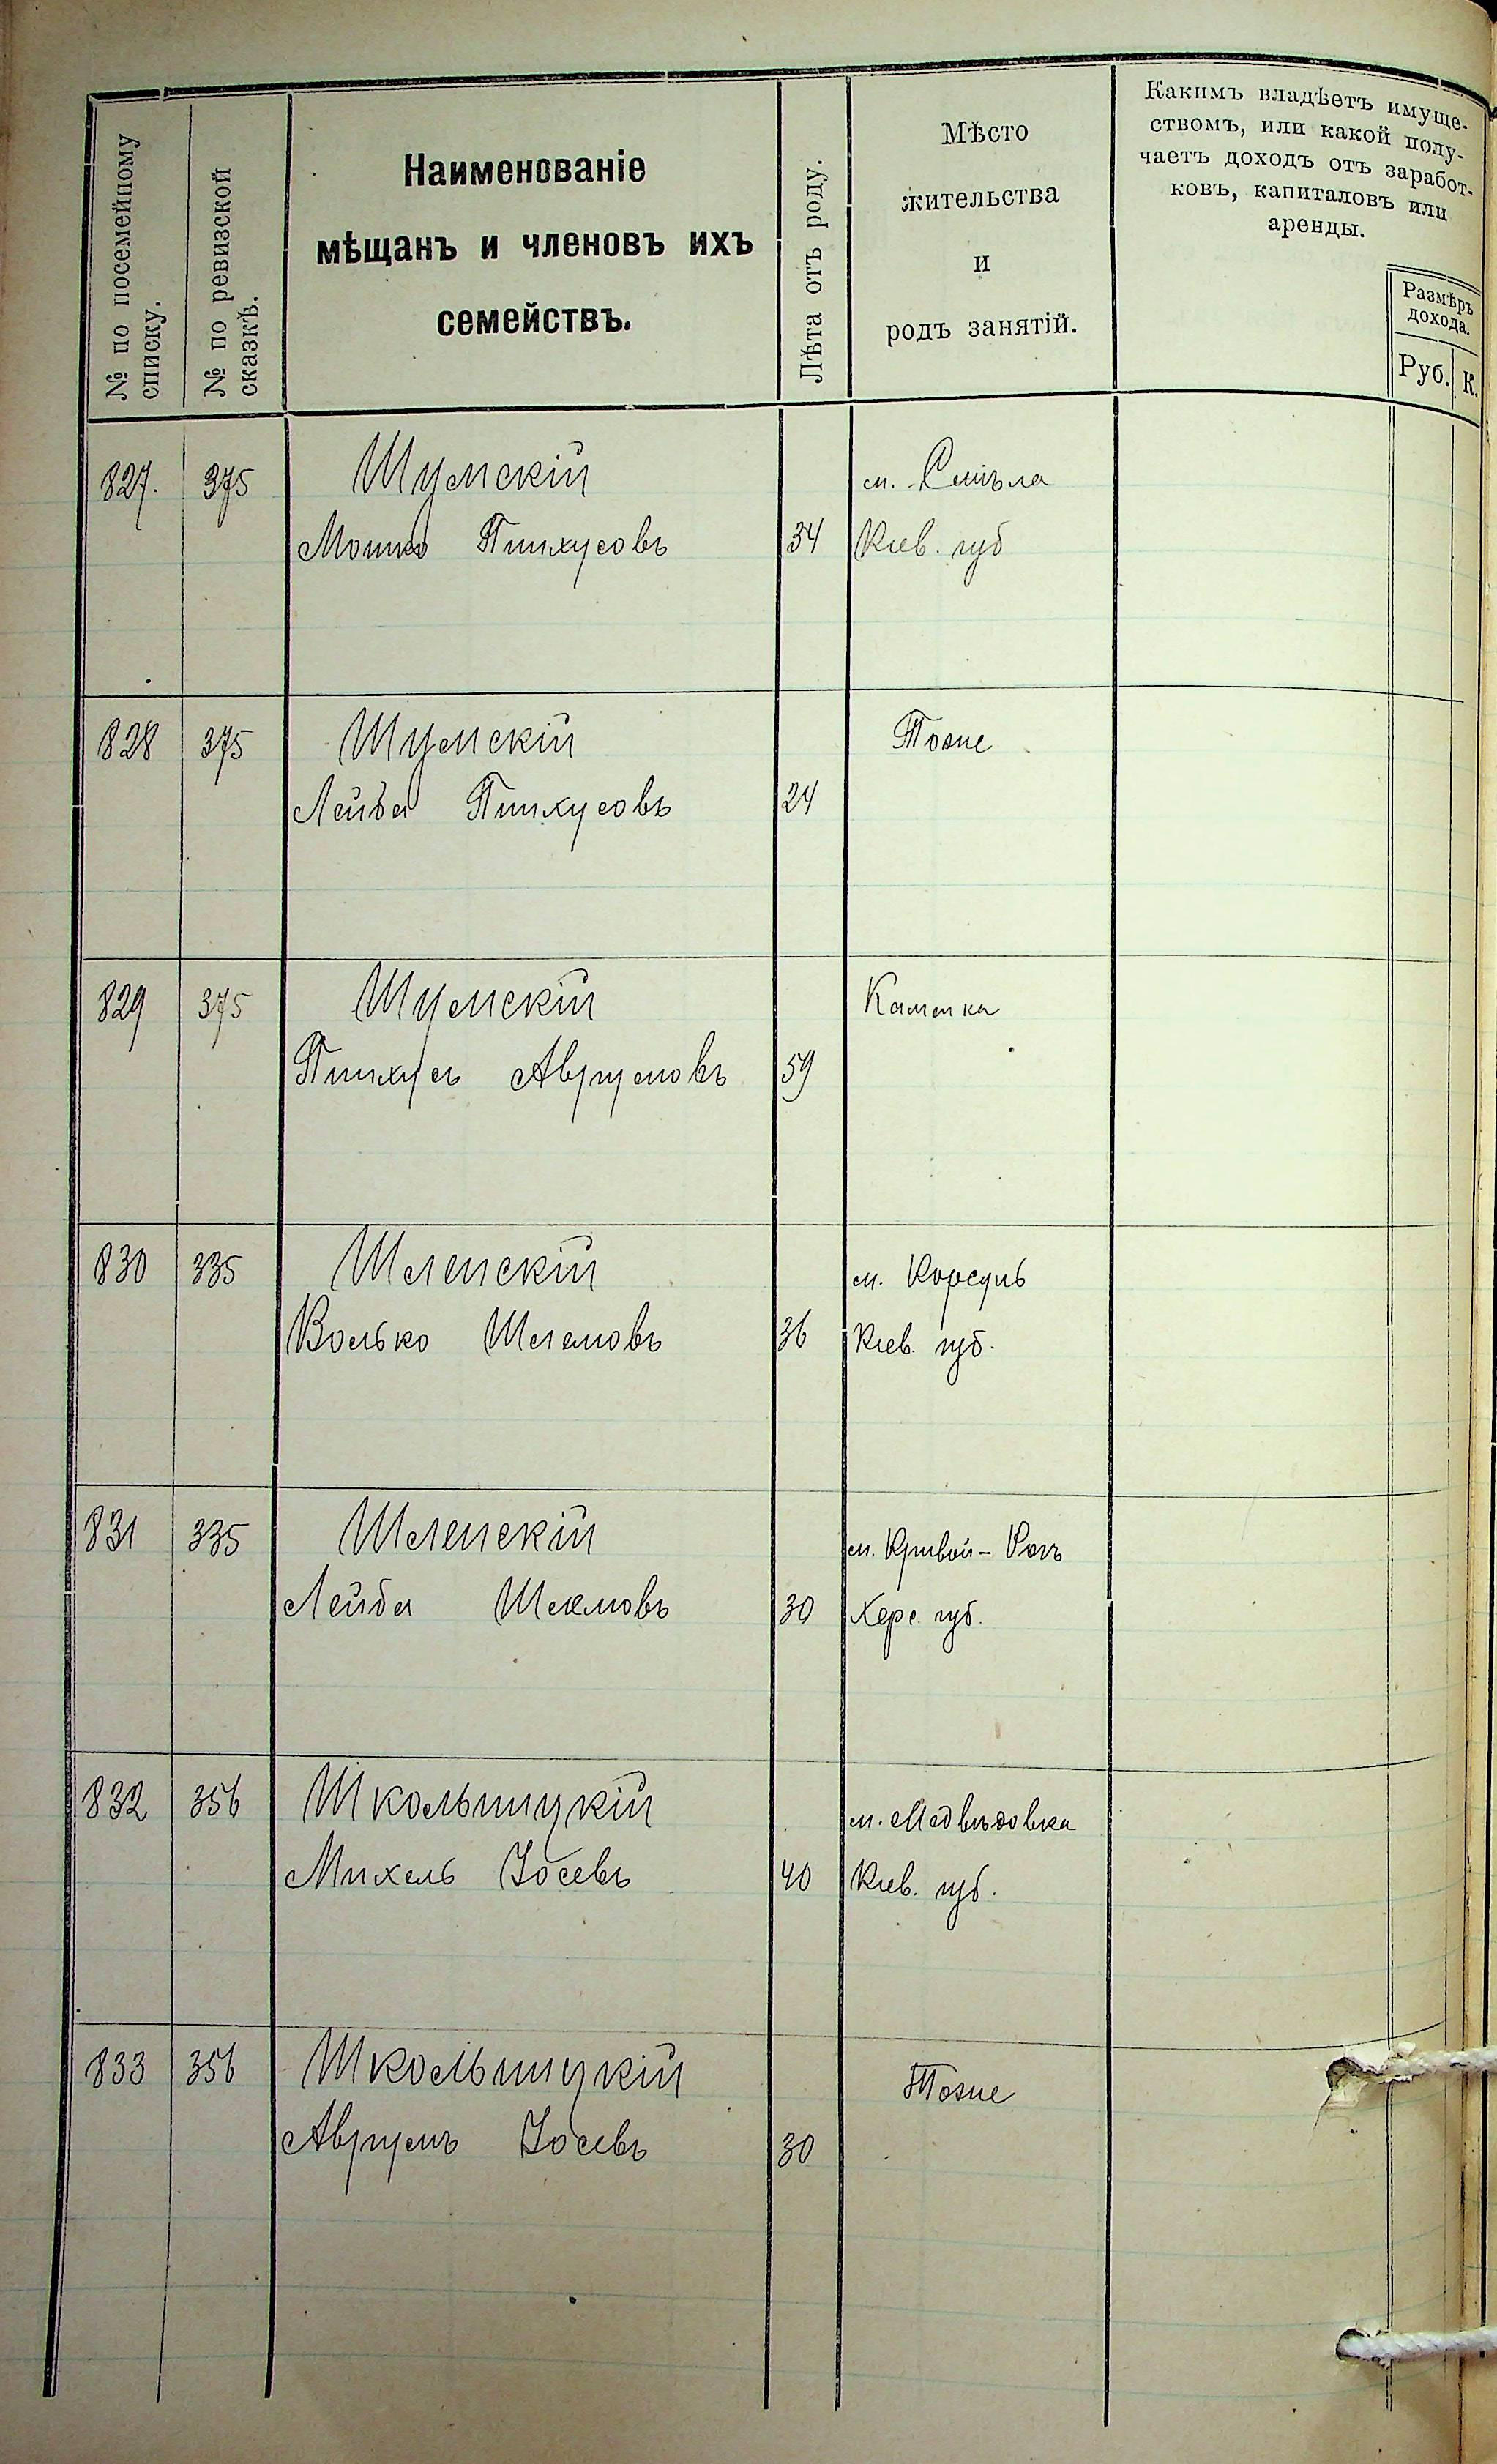 № по посемейному
списку.
№ по ревизской
сказкѣ.
Наименованіе
мѣщанъ и членовъ ихъ
семействъ.
Лѣта отъ роду.
Мѣсто
жительства
и
родъ занятій.
Какимъ владѣетъ имуще-
ствомъ, или какой полу-
чаетъ доходъ отъ заработ-
ковъ, капиталовъ или
аренды.
Размѣръ
дохода.
Руб. К.
827. 375 Шумскій м. Смѣла
Мошко Пинхусовъ 34 Кіев. губ
828 375 Шумскій Тоже
Лейба Пинхусовъ 24
829 375 Шумскій Каменка
Пинхусъ Аврумовъ 59
830 335 Шленскій м. Корсунь
Волько Шлемовъ 36 Кіев. губ.
831 335 Шленскій м. Кривой-Рогъ
Лейба Шлемовъ 30 Херс. губ.
832 356 Школьницкій м. Медвѣдовка
Михель Іосевъ 40 Кіев. губ.
833 356 Школьницкій Тоже
Аврумъ Іосевъ 30